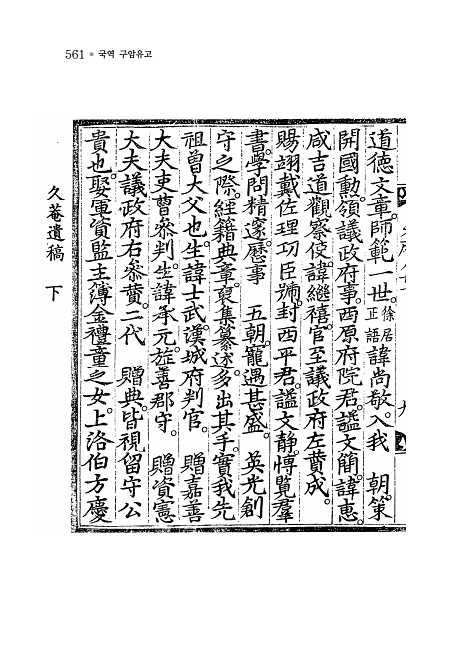 561 ● 국역 구암유고
道德文章。師範一世。徐居正語諱尚敬。入我 朝。策
開國勳。領議政府事。西原府院君。謚文簡。諱惠。
咸吉道觀察使。諱繼禧。官至議政府左贊成。
賜翊戴佐理功臣號。封西平君。謚文靜。博覽羣
書。學問精邃。歷事 五朝。寵遇甚盛。 英光創
守之際。經籍典章。裒集纂述。多出其手。實我先
祖曾大父也。生諱士武。漢城府判官。 贈嘉善
大夫吏曹叅判。生諱承元。旌善郡守。 贈資憲
大夫議政府右叅贊。二代 贈典。皆視留守公
貴也。娶軍資監主簿金禮童之女。上洛伯方慶
久菴遺稿 下